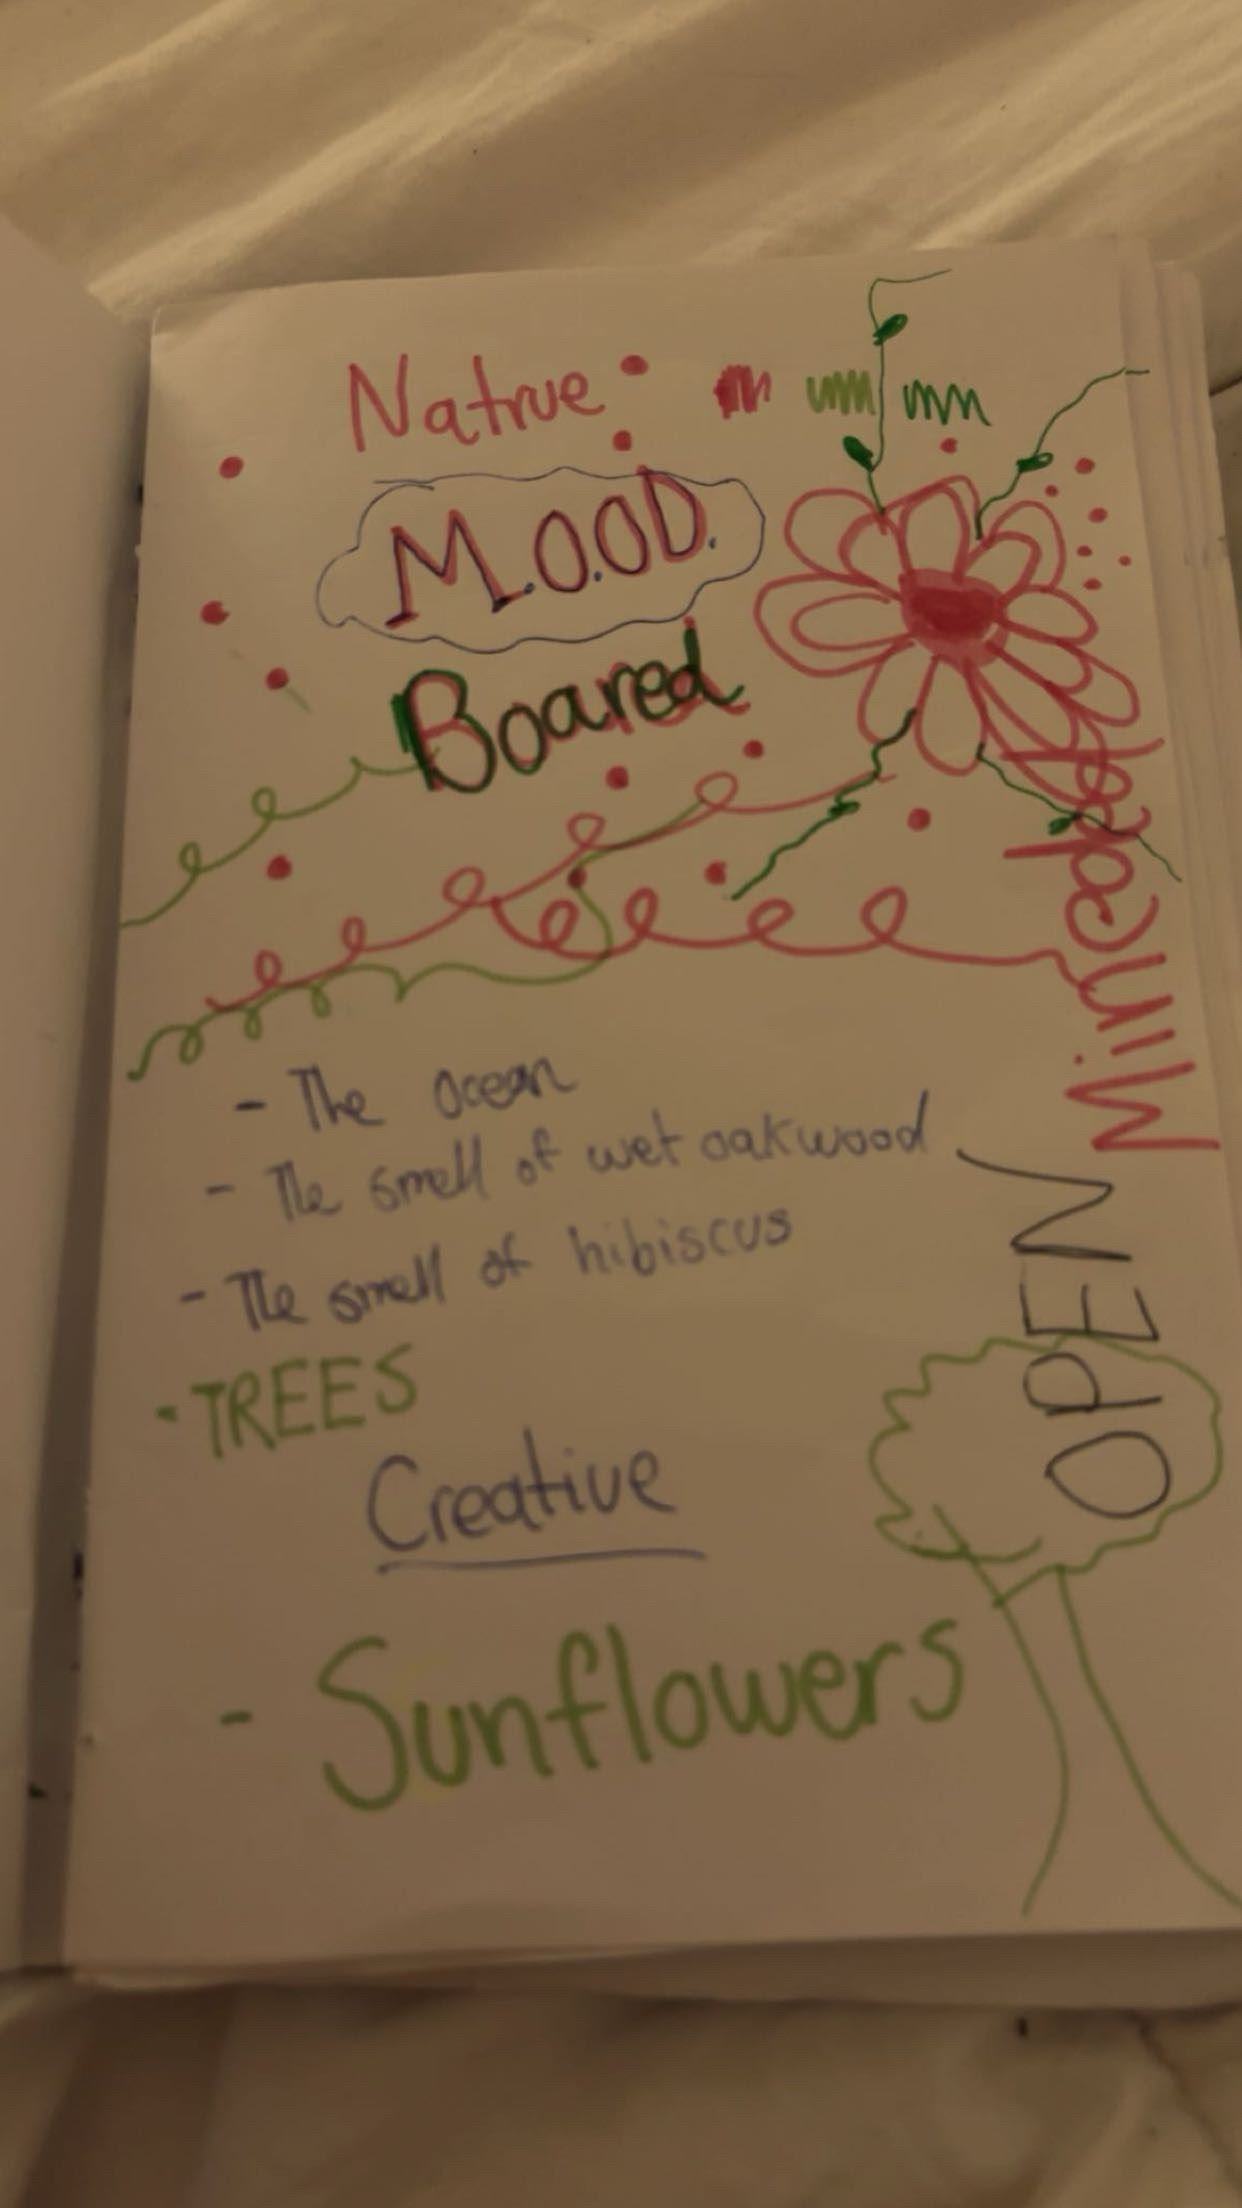 Natrue
M.O.O.D.
Boared
- The ocean
- The smell of wet oakwood
- The smell of hibiscus
- TREES
Creative
- Sunflowers
OPEN Minded